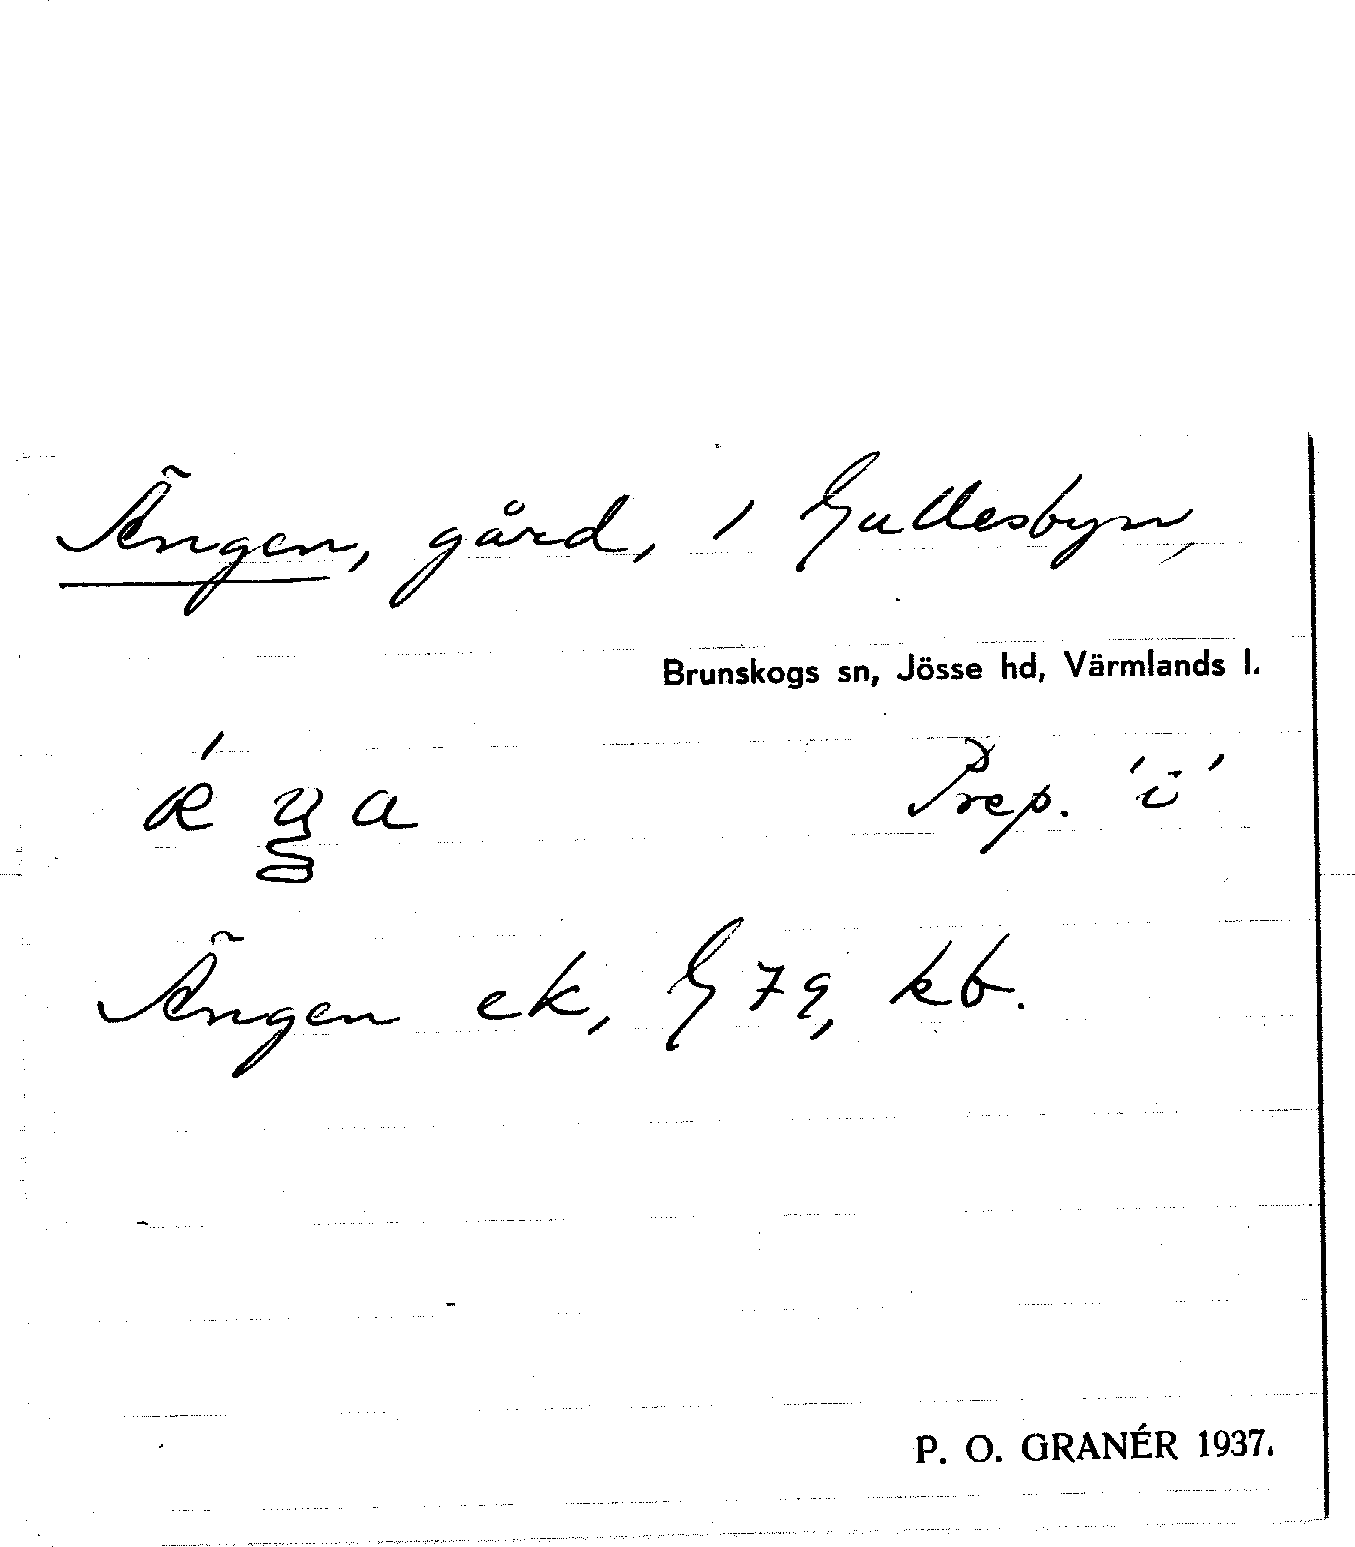 Ängen, gård, i Gullesbyn,
Brunskogs sn, Jösse hd, Värmlands l.
Prep. 'i'
Ängen ek, G 79, kb.
P. O. GRANÉR 1937.